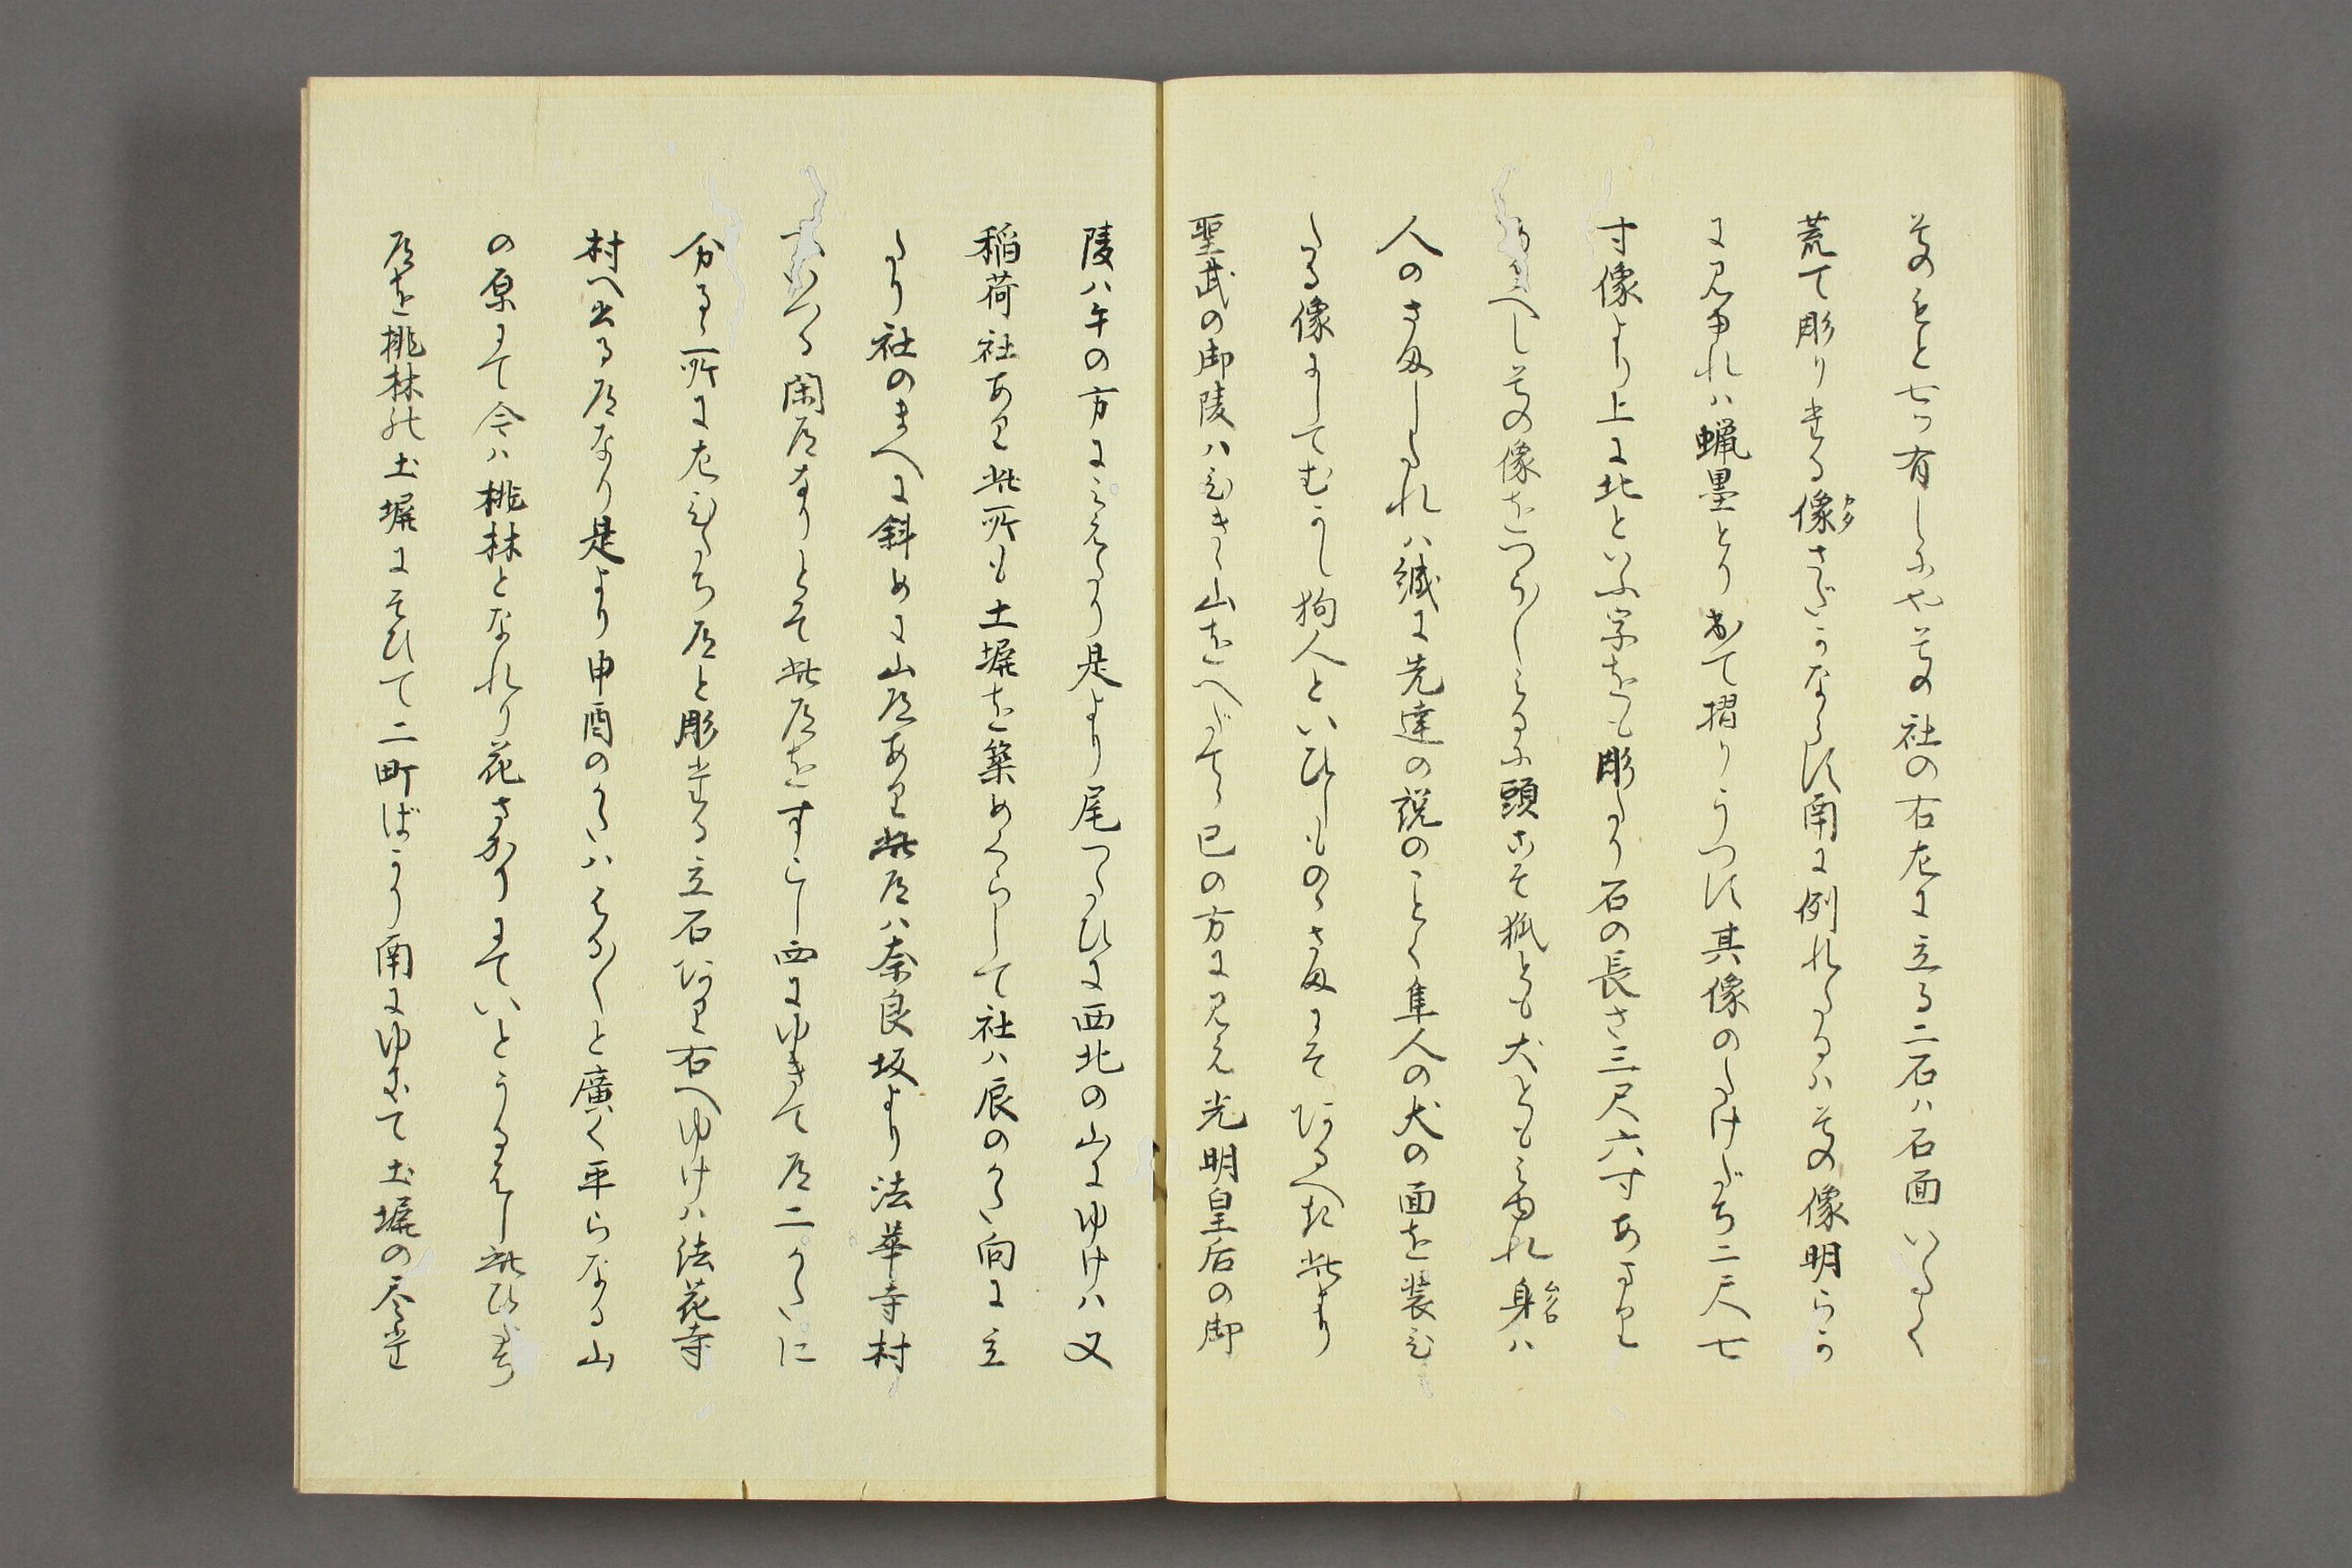 その もと七つ有しにや其の社の右左に立る二石ハ石面いたく
荒て彫りたる像さだかならす南に例れたるハ其の像明らか
に見ゆれハ蝋墨とり出て摺りうつす其像のたけだち二尺七
寸像より上に北といふ字をも彫たり石の長さ三尺六寸あまり
へし其の像をつら〳〵みるに頭こそ狐とも犬ともみゆれ身ハ
人のさましたれハ誠に先達の説のことく隼人の犬の面を装ひ
たる像にしてむかし狗人といひしものゝさまにそ有へき此より
聖武の御陵ハひきゝ山をへだてゝ巳の方に見え光明皇后の御
陵ハ午の方にみえたり是より尾つたひに西北の山にゆけハ又
稲荷社あり此所も土塀を築めくらして社ハ辰のかた向に立
たり社のまへに斜めに山道あり此道ハ奈良坂より法華寺村
へ 閑道なりとそ此道をすこし西にゆきて道二かたに
分るゝ所に左むたち道と彫たる立石有り右へゆけハ法花寺
村へ出る道なり是より申酉のかたハはる〳〵と廣く平らなる山
の原にて今ハ桃林となれり花さかりにていとうるはし此ひたち
道を桃林の土塀にそひて二町ばかり南にゆきて土塀の尽たる